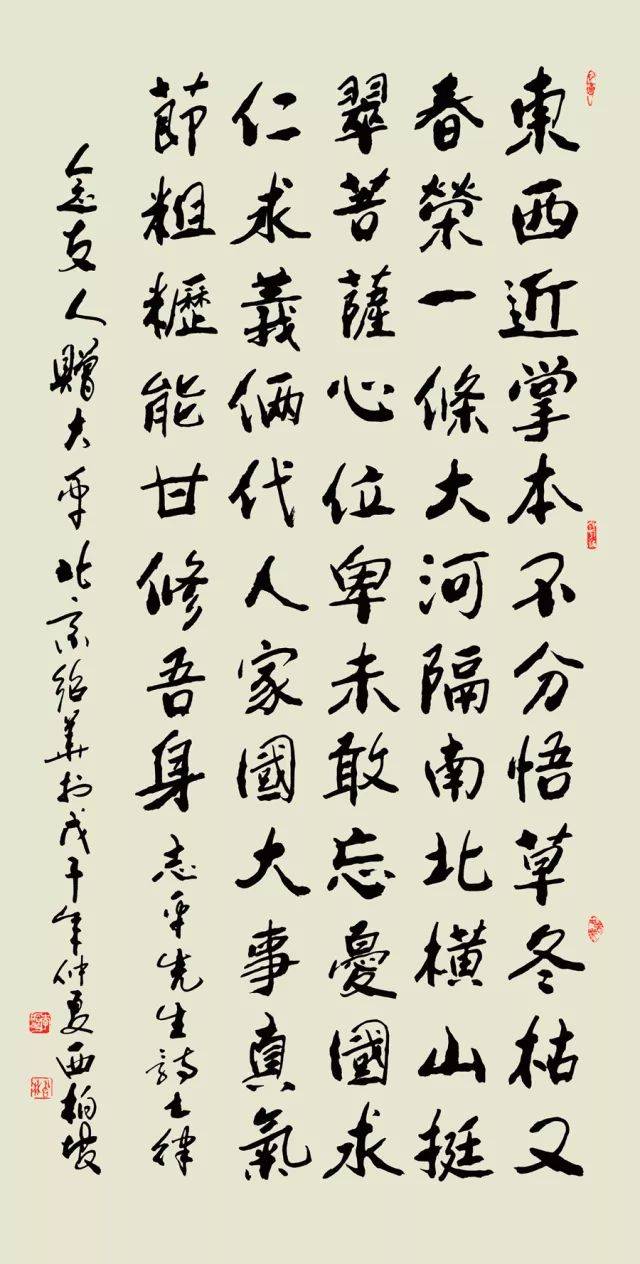 東西近掌本不分悟草冬枯又
春榮一條大河隔南北橫山挺
翠菩薩心位卑未敢忘憂國求
仁求義倆代人家國大事真氣
節粗糲能甘修吾身 志平先生詩七律
念友人贈大平北京紹華於戊子年仲夏西柏坡